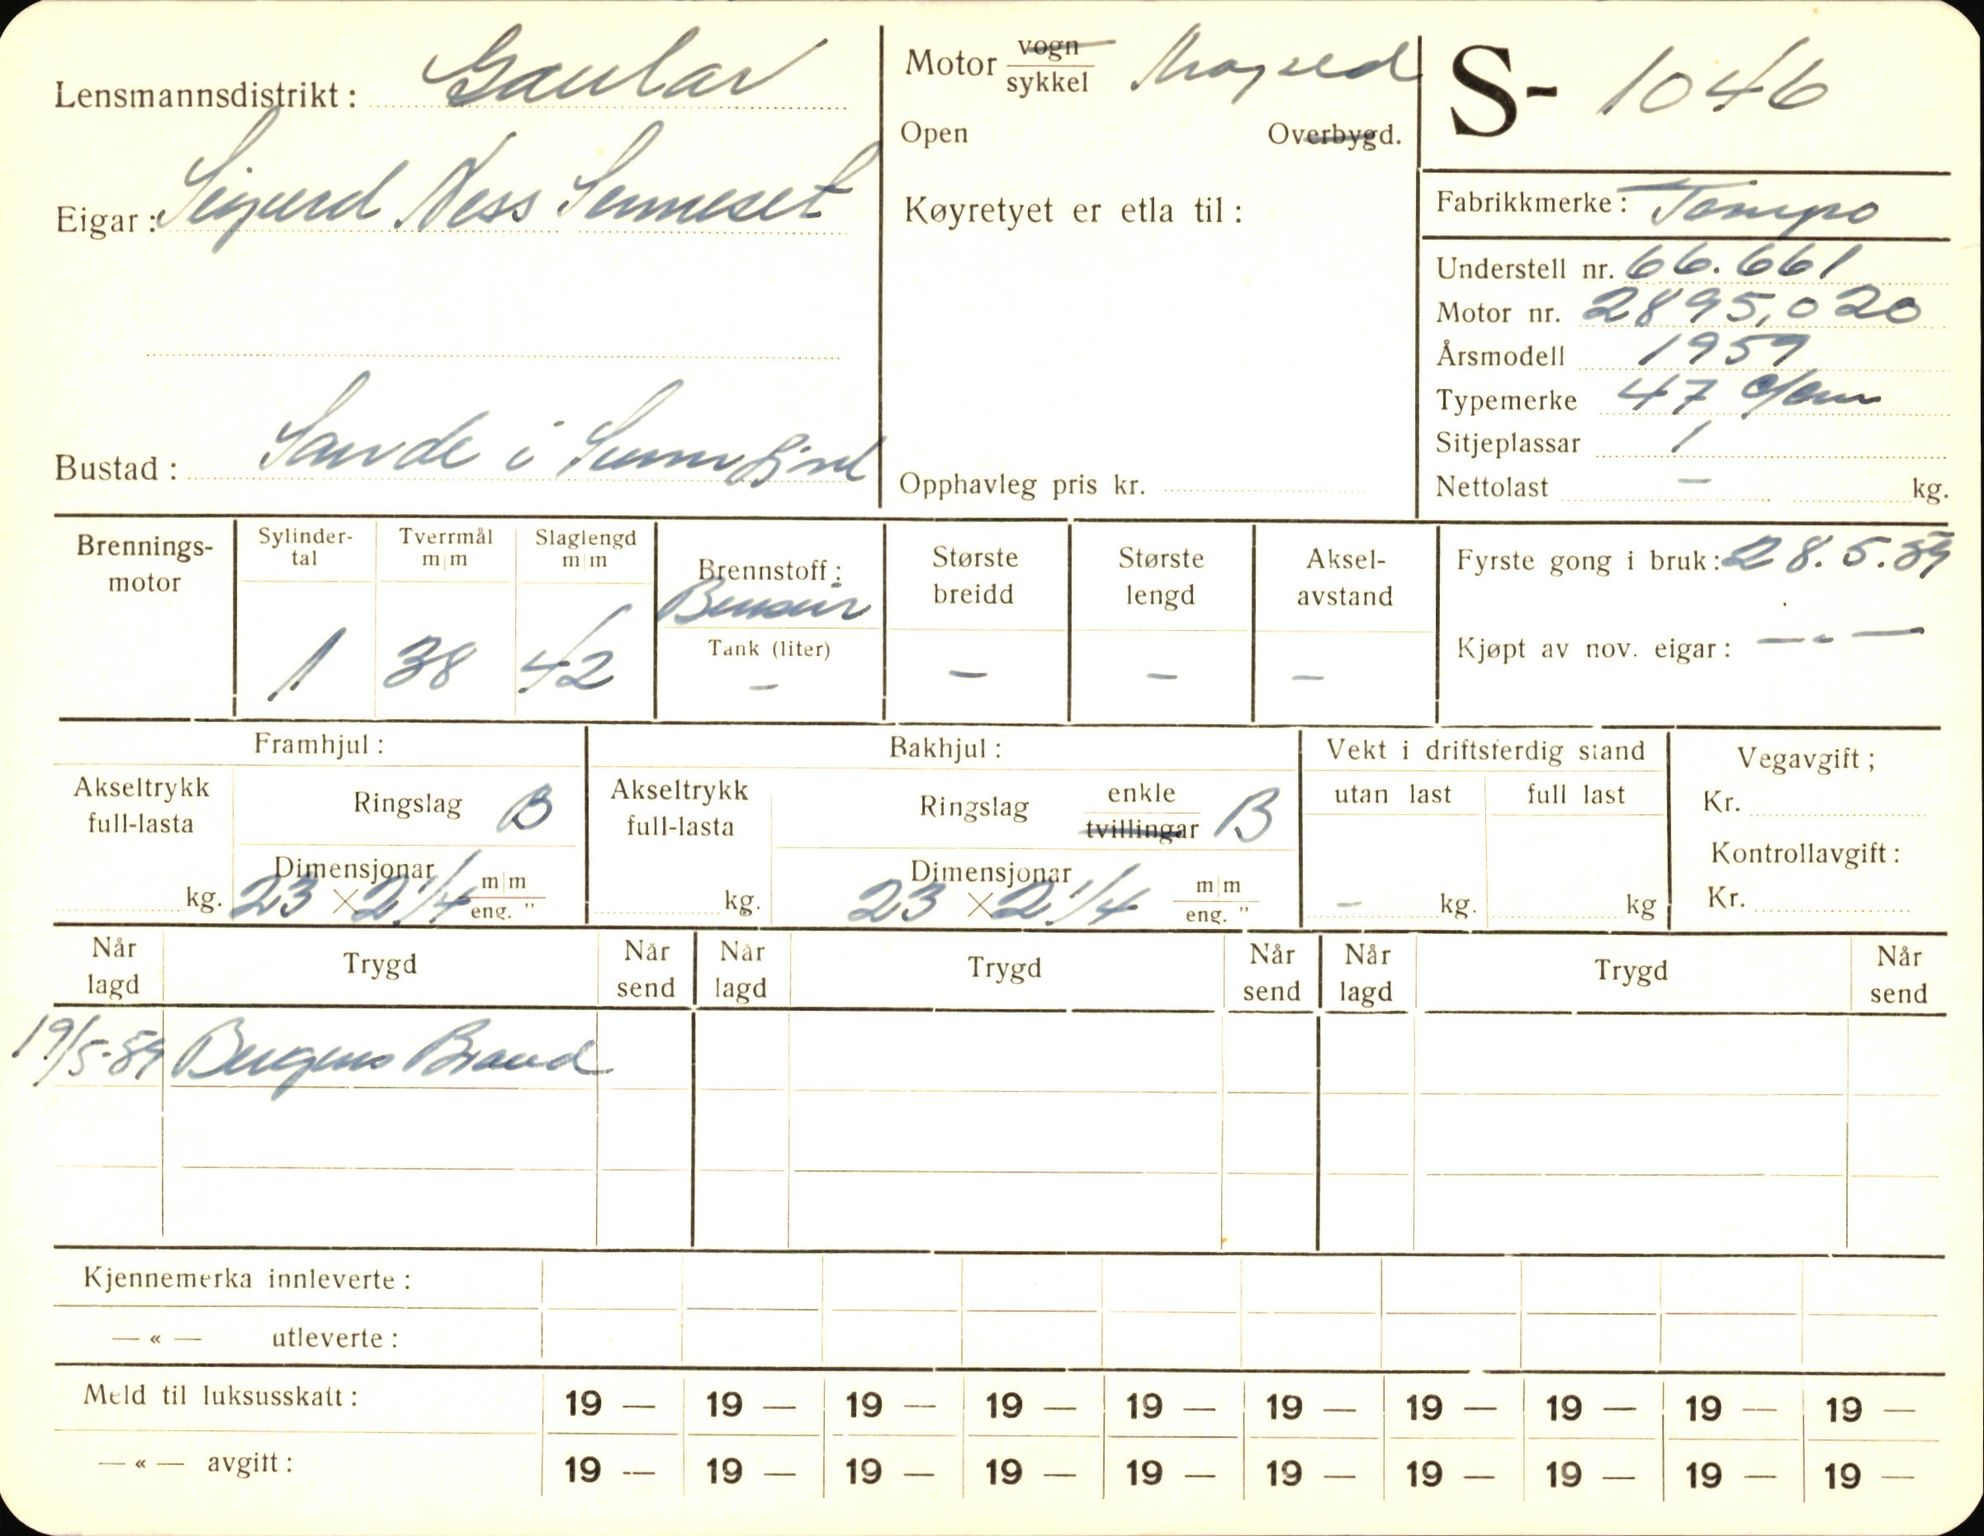 Lensmannsdistrikt: Gaular
Eigar: Sigurd Ness Senneset
Bustad: Sande i Sunnfjord
Motor vogn
sykkel Moped
Open Overbygd.
Køyretyet er etla til:
Opphavleg pris kr.
S- 1046
Fabrikkmerke: Tempo
Understell nr. 66.661
Motor nr. 2895,020
Årsmodell 1959
Typemerke 47
Sitjeplassar 1
Nettolast – kg.
Brennings-
motor
Sylinder-
tal
1
Tverrmål
m|m
38
Slaglengd
m|m
42
Brennstoff:
Bensin
Tank (liter)
–
Største
breidd
–
Største
lengd
–
Aksel-
avstand
–
Fyrste gong i bruk: 28.5.59
Kjøpt av nov. eigar: — „ —
Framhjul:
Akseltrykk
full-lasta
kg.
Ringslag B
Dimensjonar
23 × 2 1/4 m|m
eng. "
Bakhjul:
Akseltrykk
full-lasta
kg.
Ringslag enkle
tvillingar B
Dimensjonar
23 × 2 1/4 m|m
eng. "
Vekt i driftsferdig stand
utan last full last
– kg. kg
Vegavgift;
Kr.
Kontrollavgift:
Kr.
Når
lagd Trygd Når
send Når
lagd Trygd Når
send Når
lagd Trygd Når
send
19/5-59 Bergens Brand
Kjennemerka innleverte:
— « — utleverte:
Meld til luksusskatt: 19 — 19 — 19 — 19 — 19 — 19 — 19 — 19 — 19 — 19 —
— « — avgitt: 19 — 19 — 19 — 19 — 19 — 19 — 19 — 19 — 19 — 19 —